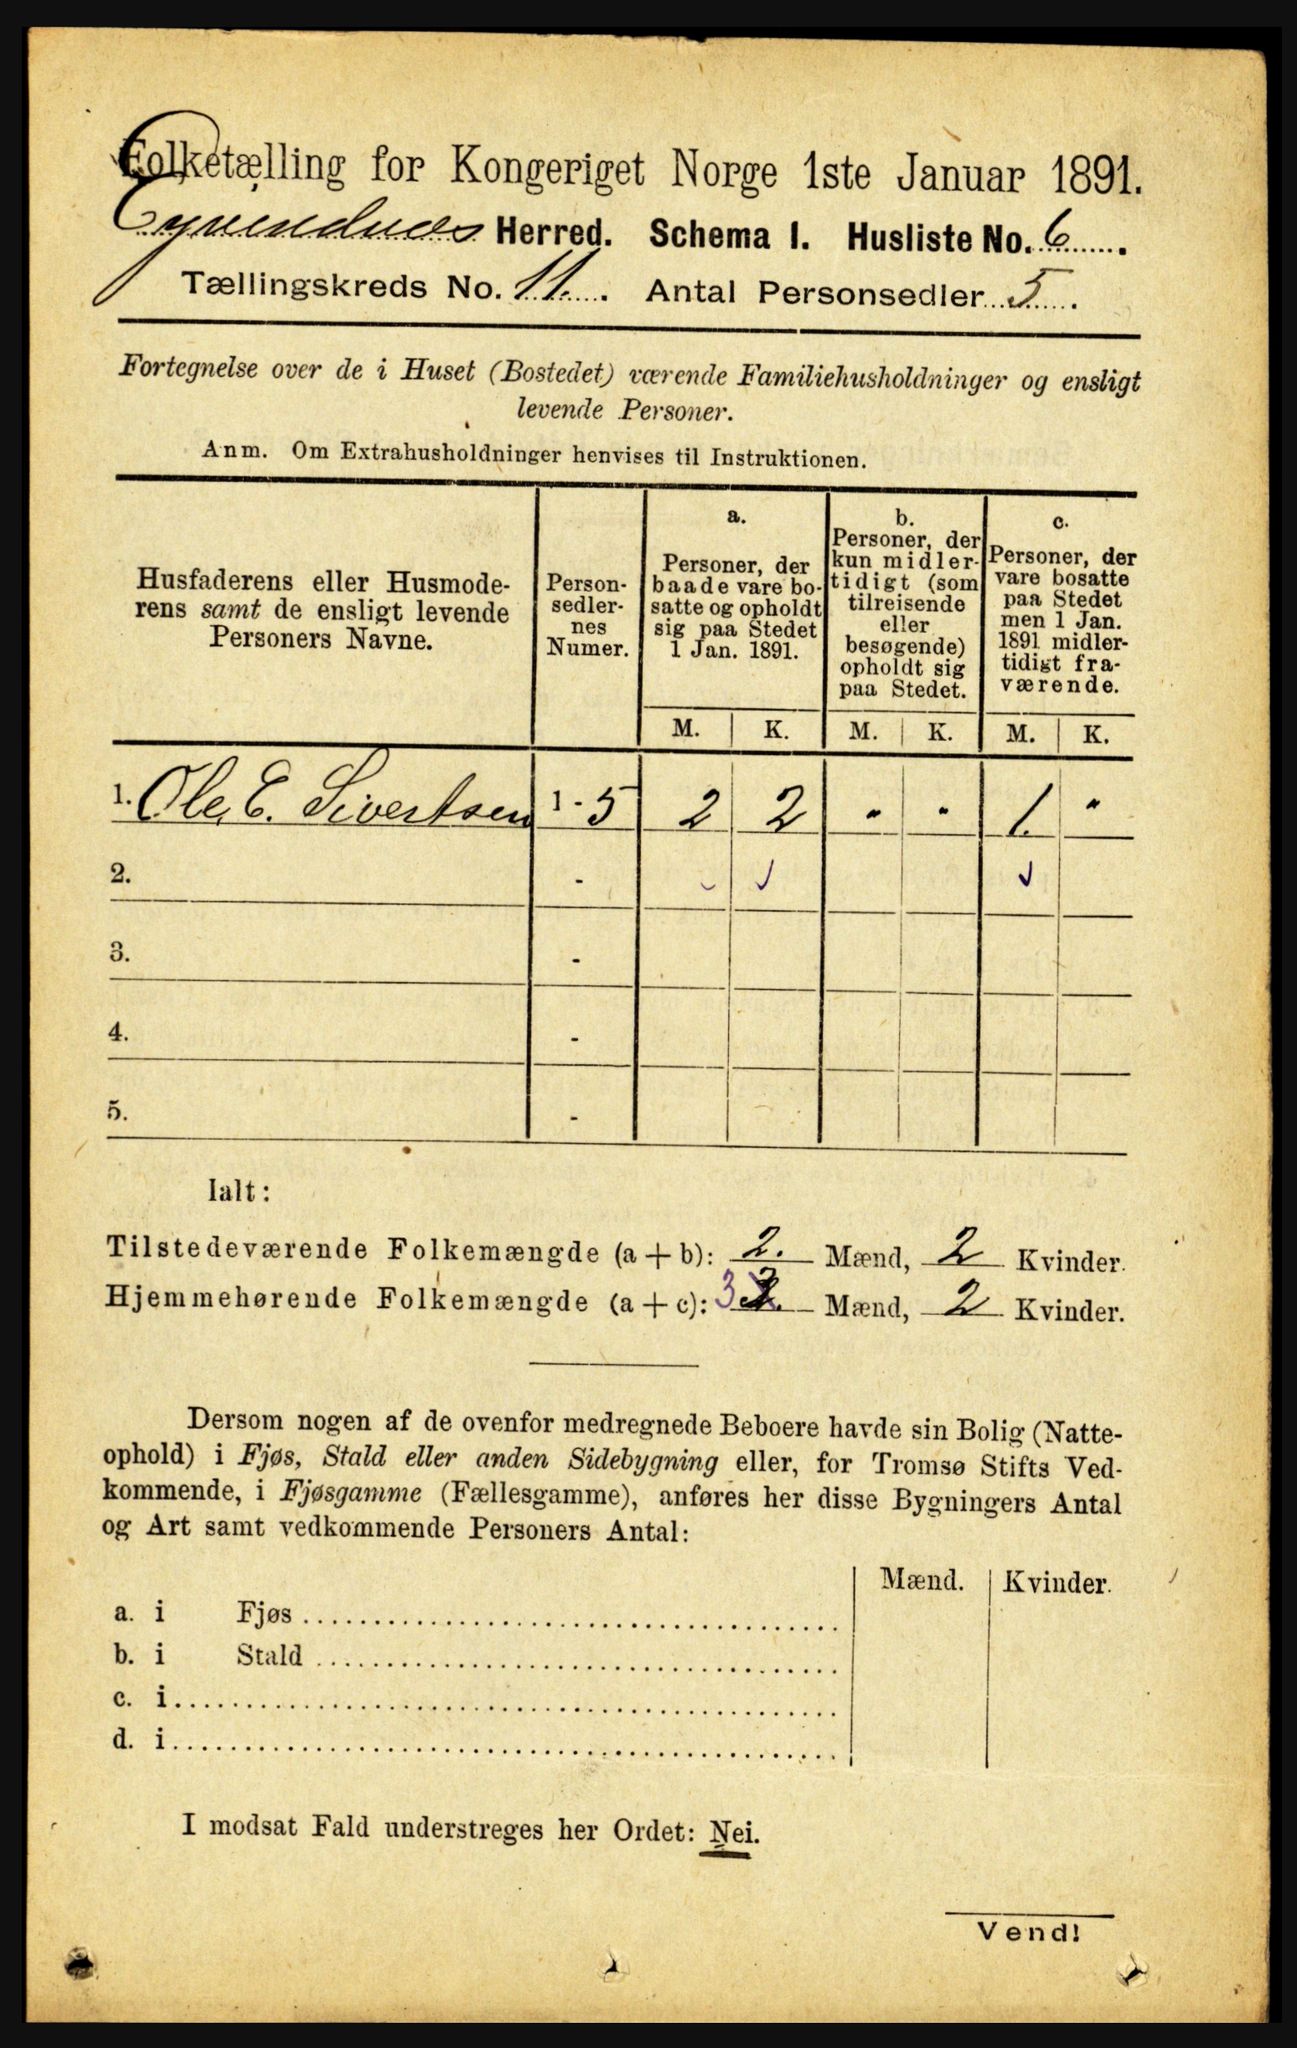 Folketælling for Kongeriget Norge 1ste Januar 1891.
Eyvindnæs Herred. Schema I. Husliste No. 6
Tællingskreds No. 11. Antal Personsedler 5.
Fortegnelse over de i Huset (Bostedet) værende Familiehusholdninger og ensligt
levende Personer.
Anm. Om Extrahusholdninger henvises til Instruktionen.
Husfaderens eller Husmode-
rens samt de ensligt levende
Personers Navne.
Person-
sedler-
nes
Numer.
a.
Personer, der
baade vare bo-
satte og opholdt
sig paa Stedet
1 Jan. 1891.
b.
Personer, der
kun midler-
tidigt (som
tilreisende
eller
besøgende)
opholdt sig
paa Stedet.
c.
Personer, der
vare bosatte
paa Stedet
men 1 Jan.
1891 midler-
tidigt fra-
værende.
M. K. M. K. M. K.
1. Ole E. Sivertsen 1 - 5 2 2 " " 1. "
2. -
3. -
4. -
5. -
Ialt:
Tilstedeværende Folkemængde (a + b): 2. Mænd, 2 Kvinder.
Hjemmehørende Folkemængde (a + c): 3 2. Mænd, 2 Kvinder.
Dersom nogen af de ovenfor medregnede Beboere havde sin Bolig (Natte-
ophold) i Fjøs, Stald eller anden Sidebygning eller, for Tromsø Stifts Ved-
kommende, i Fjøsgamme (Fællesgamme), anføres her disse Bygningers Antal
og Art samt vedkommende Personers Antal:
Mænd. Kvinder.
a. i Fjøs
b. i Stald
c. i
d. i
I modsat Fald understreges her Ordet: Nei.
Vend!